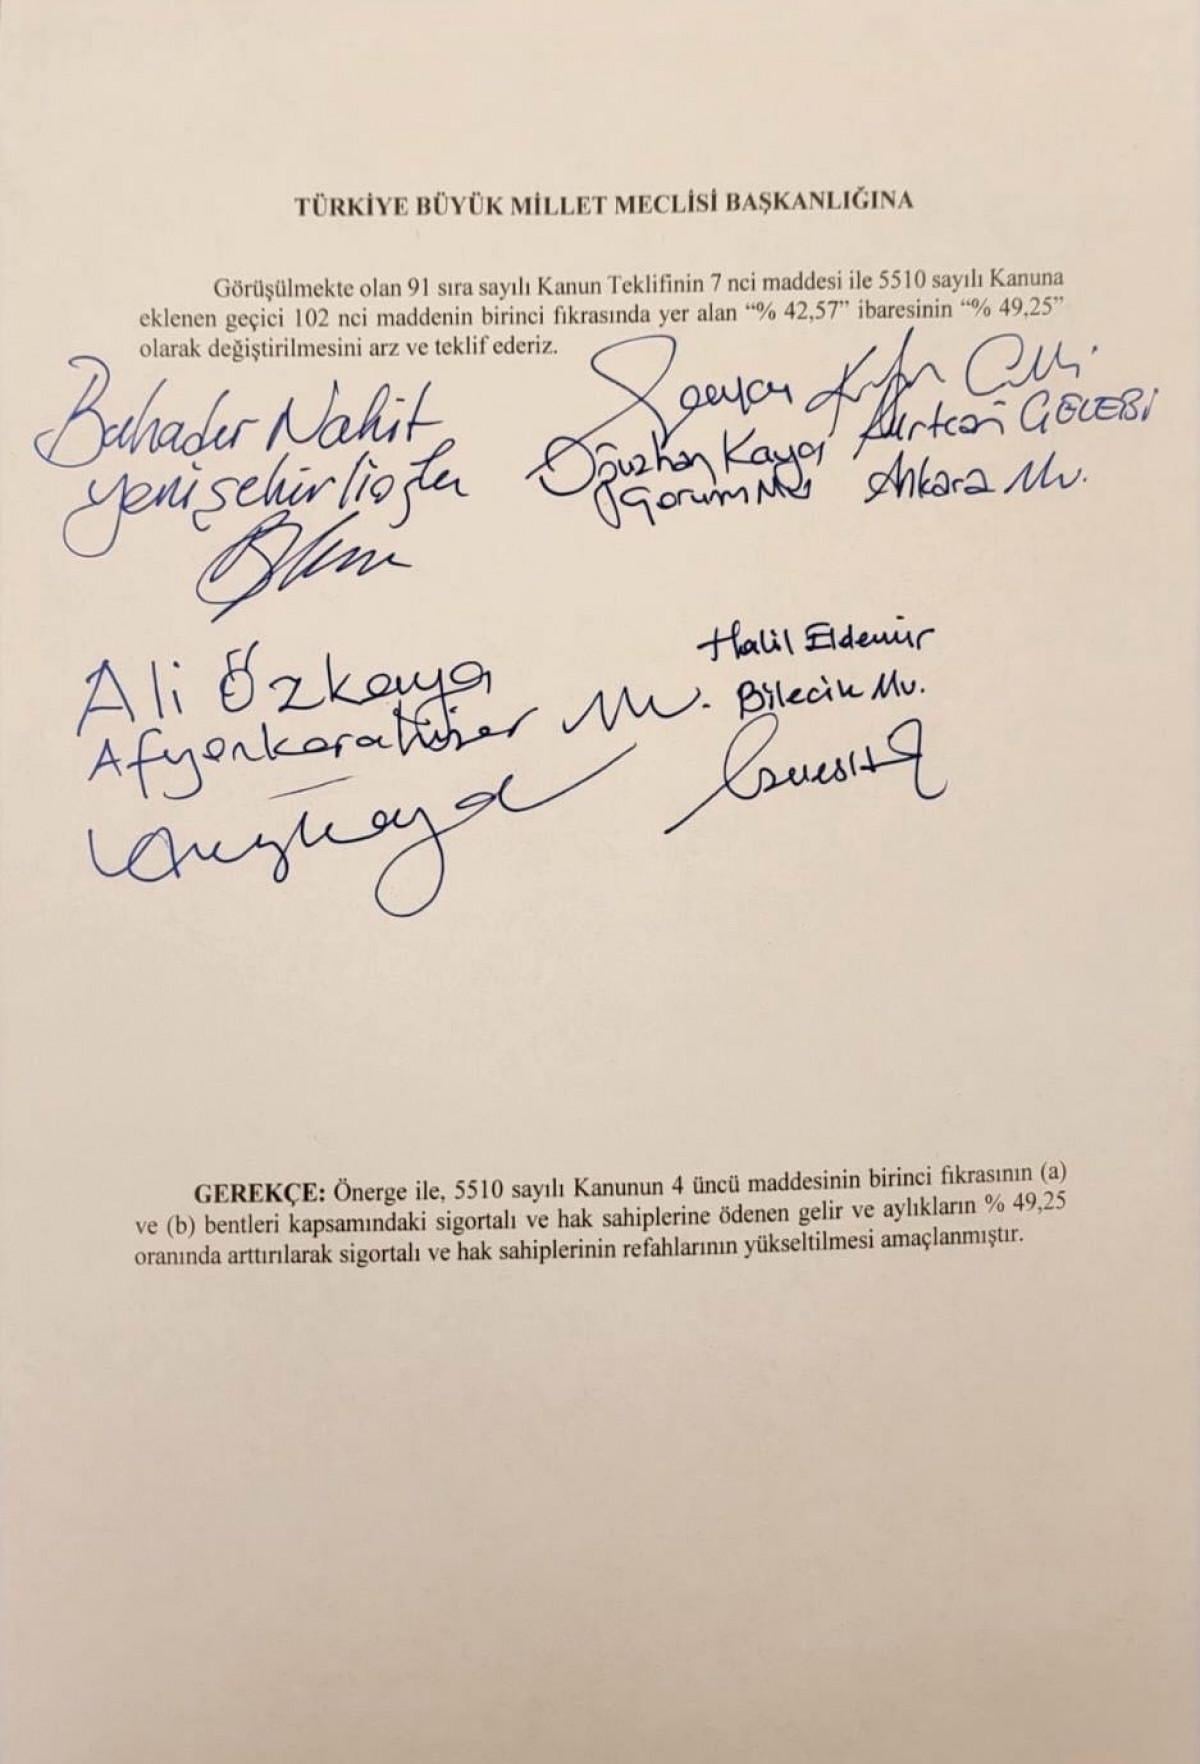 TÜRKİYE BÜYÜK MİLLET MECLİSİ BAŞKANLIĞINA
Görüşülmekte olan 91 sıra sayılı Kanun Teklifinin 7 nci maddesi ile 5510 sayılı Kanuna
eklenen geçici 102 nci maddenin birinci fıkrasında yer alan “% 42,57” ibaresinin “% 49,25”
olarak değiştirilmesini arz ve teklif ederiz.
Bahadır Nahit
Yenişehirlioğlu
Oğuzhan Kaya
Çorum Mv
GELEBİ
Ankara Mv.
Ali Özkaya
Afyonkarahisar Mv.
Halil Eldemir
Bilecik Mv.
GEREKÇE: Önerge ile, 5510 sayılı Kanunun 4 üncü maddesinin birinci fıkrasının (a)
ve (b) bentleri kapsamındaki sigortalı ve hak sahiplerine ödenen gelir ve aylıkların % 49,25
oranında arttırılarak sigortalı ve hak sahiplerinin refahlarının yükseltilmesi amaçlanmıştır.